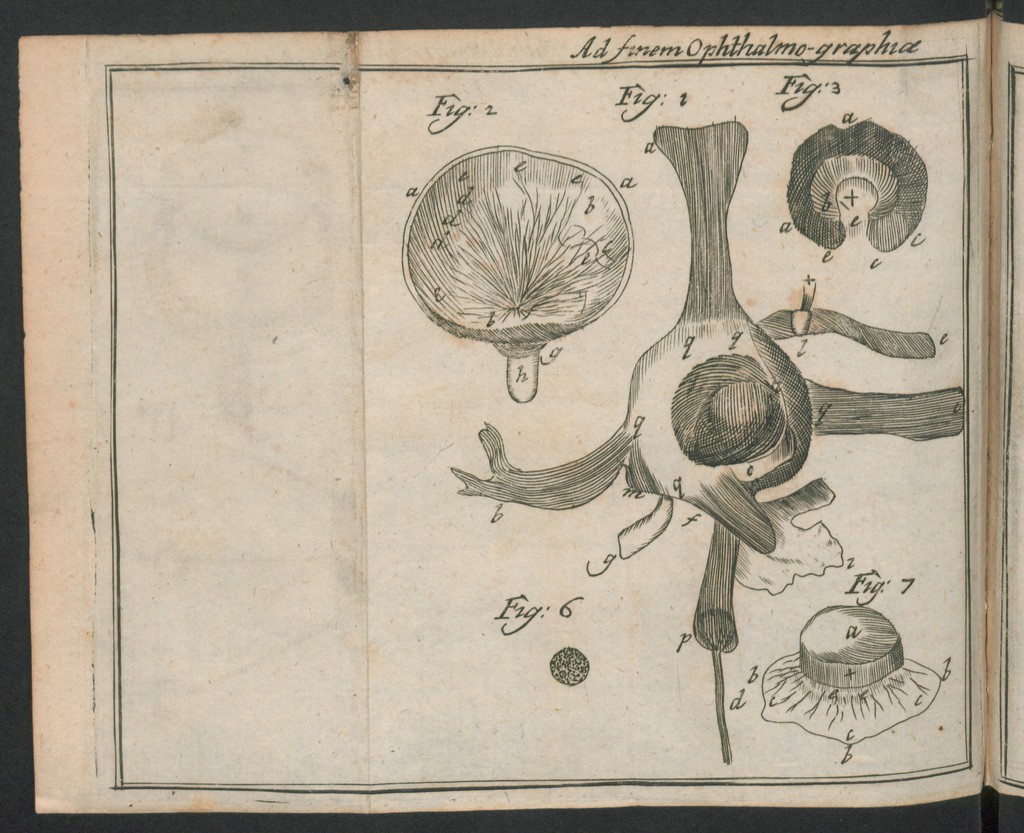 Ad finem Ophthalmo-graphiæ
Fig: 2
Fig: 1
Fig: 3
a
e
e
e
a
d
d
b
b
g
h
a
a
b
+
e
a
c
e
c
+
l
e
q
q
g
q
c
m
q
f
b
g
i
Fig: 6
p
d
Fig: 7
a
+
b
b
c
c
e
e
c
b